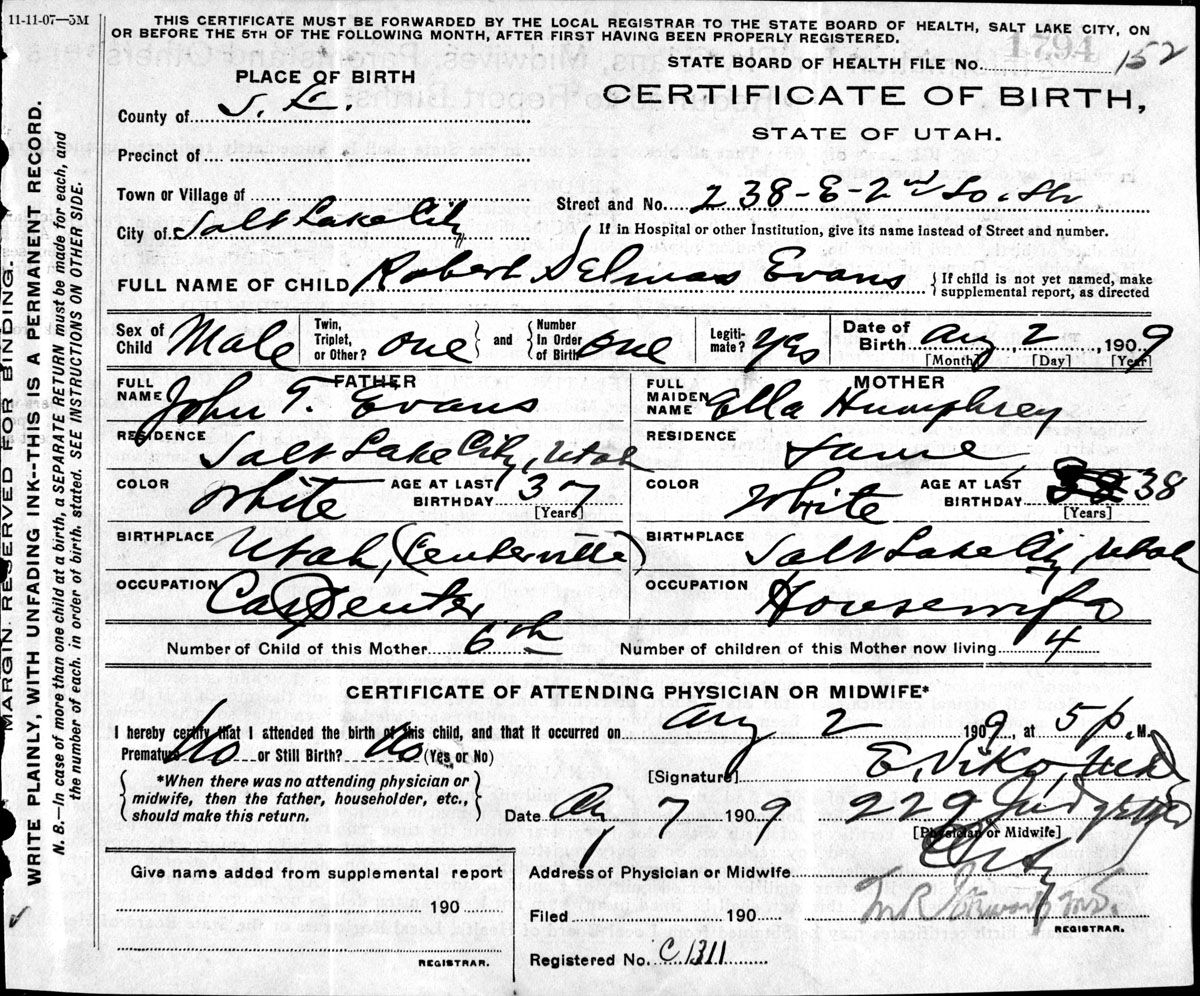 11-11-07—5M
THIS CERTIFICATE MUST BE FORWARDED BY THE LOCAL REGISTRAR TO THE STATE BOARD OF HEALTH, SALT LAKE CITY, ON
OR BEFORE THE 5TH OF THE FOLLOWING MONTH, AFTER FIRST HAVING BEEN PROPERLY REGISTERED.
1794
STATE BOARD OF HEALTH FILE No. 152
PLACE OF BIRTH
CERTIFICATE OF BIRTH,
STATE OF UTAH.
County of S. L.
Precinct of
Town or Village of
Street and No. 238-E-2nd So. Str
City of Salt Lake City
If in Hospital or other Institution, give its name instead of Street and number.
FULL NAME OF CHILD Robert Delmas Evans
{If child is not yet named, make
supplemental report, as directed
Sex of Child Male
Twin, Triplet, or Other? one
and
Number In Order of Birth one
Legiti-mate? Yes
Date of Birth Aug, 2, 1909
[Month] [Day] [Year]
FATHER
FULL NAME John T. Evans
MOTHER
FULL MAIDEN NAME Ella Humphrey
RESIDENCE Salt Lake City, Utah
RESIDENCE Same
COLOR White
AGE AT LAST BIRTHDAY 37
[Years]
COLOR White
AGE AT LAST BIRTHDAY 38
[Years]
BIRTHPLACE Utah, (Centerville)
BIRTHPLACE Salt Lake City, Utah
OCCUPATION Carpenter
OCCUPATION Housewife
Number of Child of this Mother 6th
Number of children of this Mother now living 4
CERTIFICATE OF ATTENDING PHYSICIAN OR MIDWIFE*
I hereby certify that I attended the birth of this child, and that it occurred on Aug 2 1909, at 5 p. M.
Premature No or Still Birth? No (Yes or No)
[Signature] E. Viko,
*When there was no attending physician or
midwife, then the father, householder, etc.,
should make this return.
Date Aug 7 1909 229 Judge
[Physician or Midwife]
Address of Physician or Midwife City
Give name added from supplemental report
190
REGISTRAR.
Filed 190
REGISTRAR.
Registered No. C. 1311
MARGIN RESERVED FOR BINDING.
WRITE PLAINLY, WITH UNFADING INK--THIS IS A PERMANENT RECORD.
N. B.—In case of more than one child at a birth, a SEPARATE RETURN must be made for each, and
the number of each. in order of birth. stated. SEE INSTRUCTIONS ON OTHER SIDE.